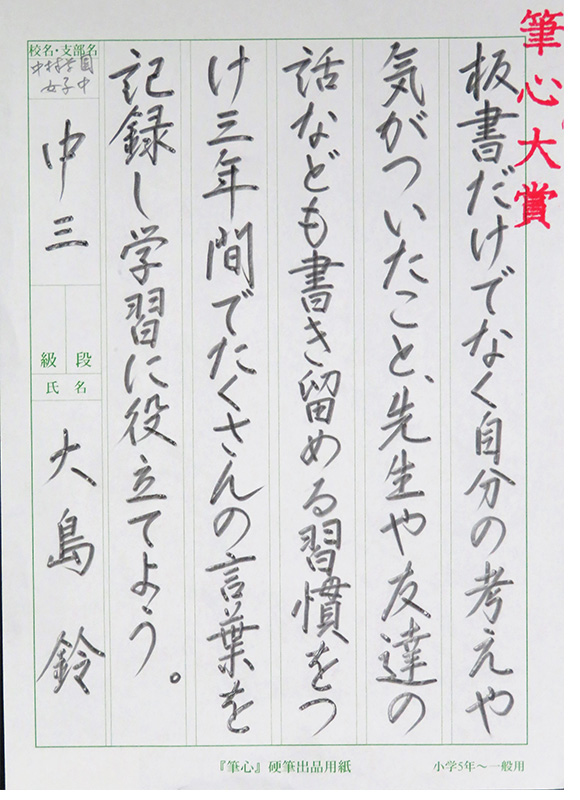 筆心大賞
板書だけでなく自分の考えや
気がついたこと、先生や友達の
話なども書き留める習慣をつ
け三年間でたくさんの言葉を
記録し学習に役立てよう。
校名・支部名
中村学園
女子中
中三
級段
氏名
大島鈴
『筆心』硬筆出品用紙
小学5年～一般用